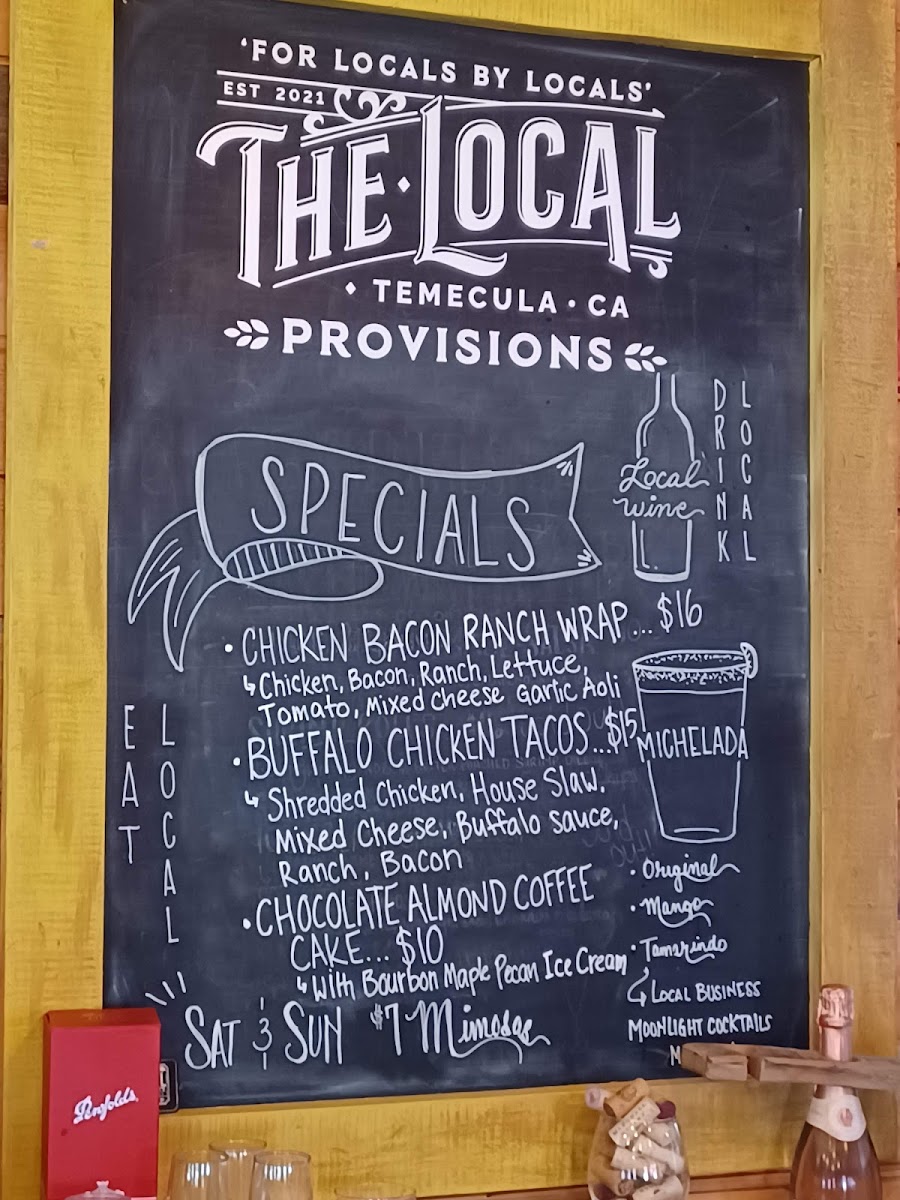 'FOR LOCALS BY LOCALS'
EST 2021
THE · LOCAL
TEMECULA · CA
PROVISIONS
DRINK
LOCAL
Local
wine
SPECIALS
• CHICKEN BACON RANCH WRAP... $16
↳ Chicken, Bacon, Ranch, Lettuce,
Tomato, Mixed Cheese Garlic Aoli
• BUFFALO CHICKEN TACOS...$15
↳ Shredded Chicken, House Slaw.
Mixed Cheese, Buffalo sauce,
Ranch, Bacon
• CHOCOLATE ALMOND COFFEE
CAKE... $10
↳ With Bourbon Maple Pecan Ice Cream
SAT & SUN $7 Mimosas
EAT
LOCAL
MICHELADA
• Original
• Mango
• Tamarindo
↳ LOCAL BUSINESS
MOONLIGHT COCKTAILS
Penfolds